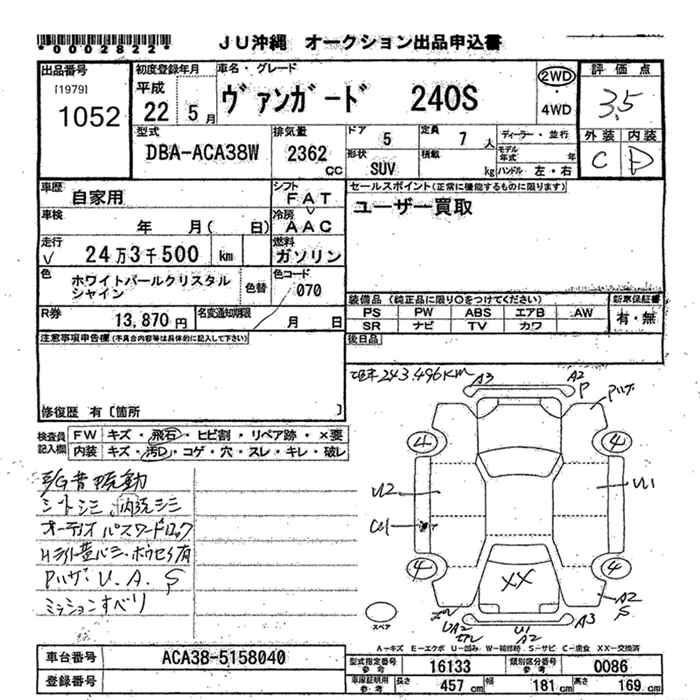 *0002822* JU沖縄 オークション出品申込書
出品番号 初度登録年月 車名・グレード 評価点
[1979] 1052 平成 22 5月 ヴァンガード 240S 2WD ・ 4WD 3.5
型式 排気量 ドア 5 定員 7 人 ディーラー・並行 外装 内装
DBA-ACA38W 2362 cc 形状 SUV 積載 kg モデル年式 年 ハンドル 左・右 C D
車歴 自家用 シフト FAT セールスポイント(正常に機能するものに限ります)
車検 年 月( 日) 冷房 AAC ユーザー買取
走行 24万3千500 km 燃料 ガソリン
色 ホワイトパールクリスタルシャイン 色替 色コード 070
装備品 (純正品に限り○をつけてください) 新車保証書
R券 13,870円 名変通知期限 月 日 PS PW ABS エアB AW 有・無
SR ナビ TV カワ
注意事項申告欄(不具合内容等は具体的に記入して下さい) 後日品
243,496KM
修復歴 有[箇所 ]
検査員記入欄 FW キズ・飛石・ヒビ割・リペア跡・×要
内装 キズ・汚D・コゲ・穴・スレ・キレ・破レ
E/G音振動
シートシミ、内洗シミ
オーディオパスワードロック
ミッションすべり
A3 A2 P
4 4
U2 U1
4 4
XX A2 S
スペア UA2 U1 A2 A3
A-キズ E-エクボ U-凹み W-補修跡 S-サビ C-腐食 XX-交換済
車台番号 ACA38-5158040 型式指定番号 参考 16133 類別区分番号 参考 0086
登録番号 車庫証明用 参考 長さ 457 cm 幅 181 cm 高さ 169 cm